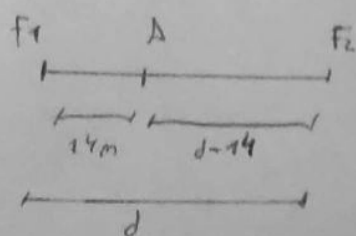 F1 A F2
14m d-14
d